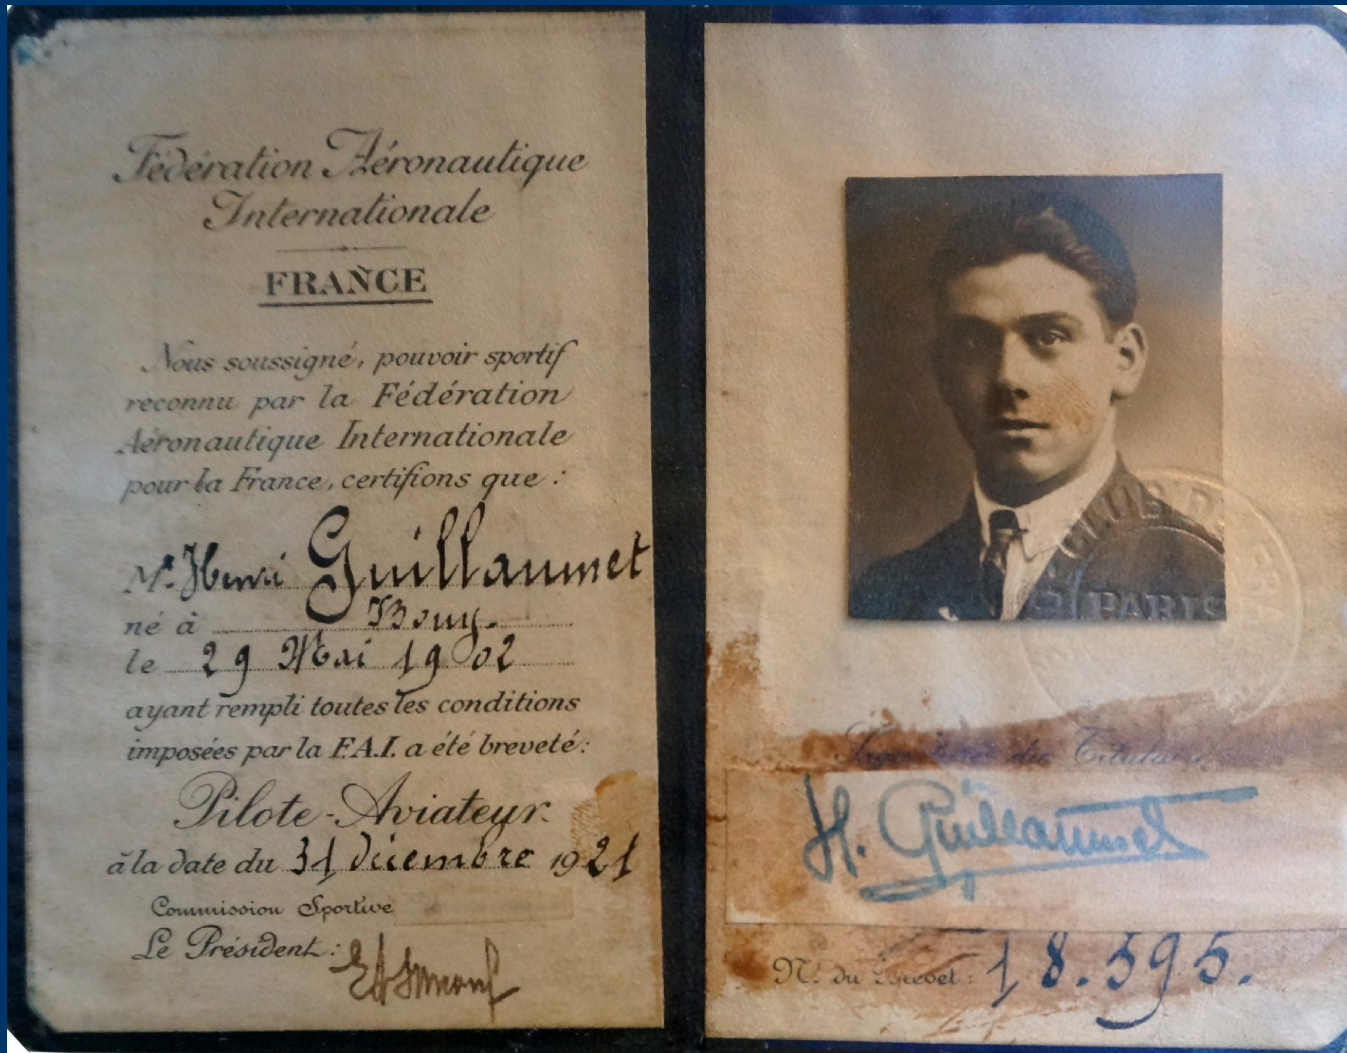 Fédération Aéronautique
Internationale
FRANCE
Nous soussigné, pouvoir sportif
reconnu par la Fédération
Aéronautique Internationale
pour la France, certifions que :
Mr. Henri Guillaumet
né à Bouy.
le 29 Mai 1902
ayant rempli toutes les conditions
imposées par la F.A.I. a été breveté :
Pilote-Aviateur.
à la date du 31 décembre 1921
Commission Sportive
Le Président :
CLUB D
PARIS
Signature du Titulaire
H. Guillaumet
No. du Brevet : 18.595.